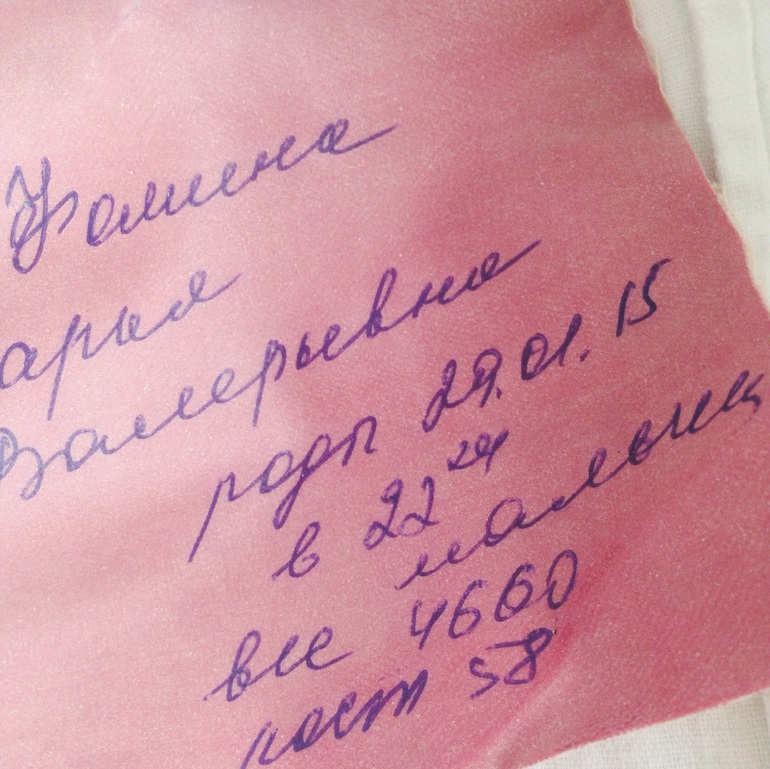 Фомина
арья
Валерьевна
роды 29.01.15
в 22 24
мальчик
вес 4660
рост 58